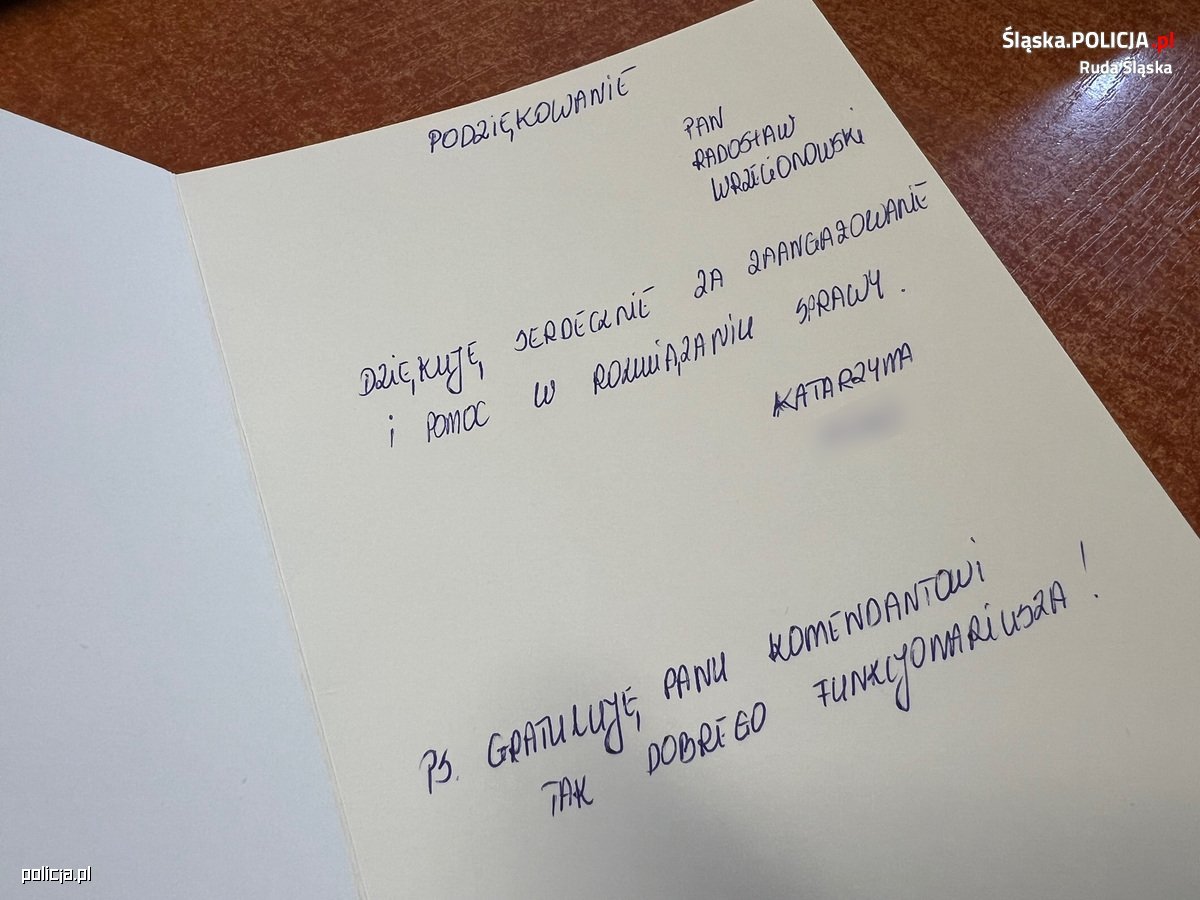 Śląska.POLICJA.pl
Ruda Śląska
PODZIĘKOWANIE
PAN
RADOSŁAW
WRZECIONOWSKI
DZIĘKUJĘ SERDECZNIE ZA ZAANGAŻOWANIE
i POMOC W ROZWIĄZANIU SPRAWY.
KATARZYNA
PS. GRATULUJĘ PANU KOMENDANTOWI
TAK DOBREGO FUNKCJONARIUSZA!
policja.pl